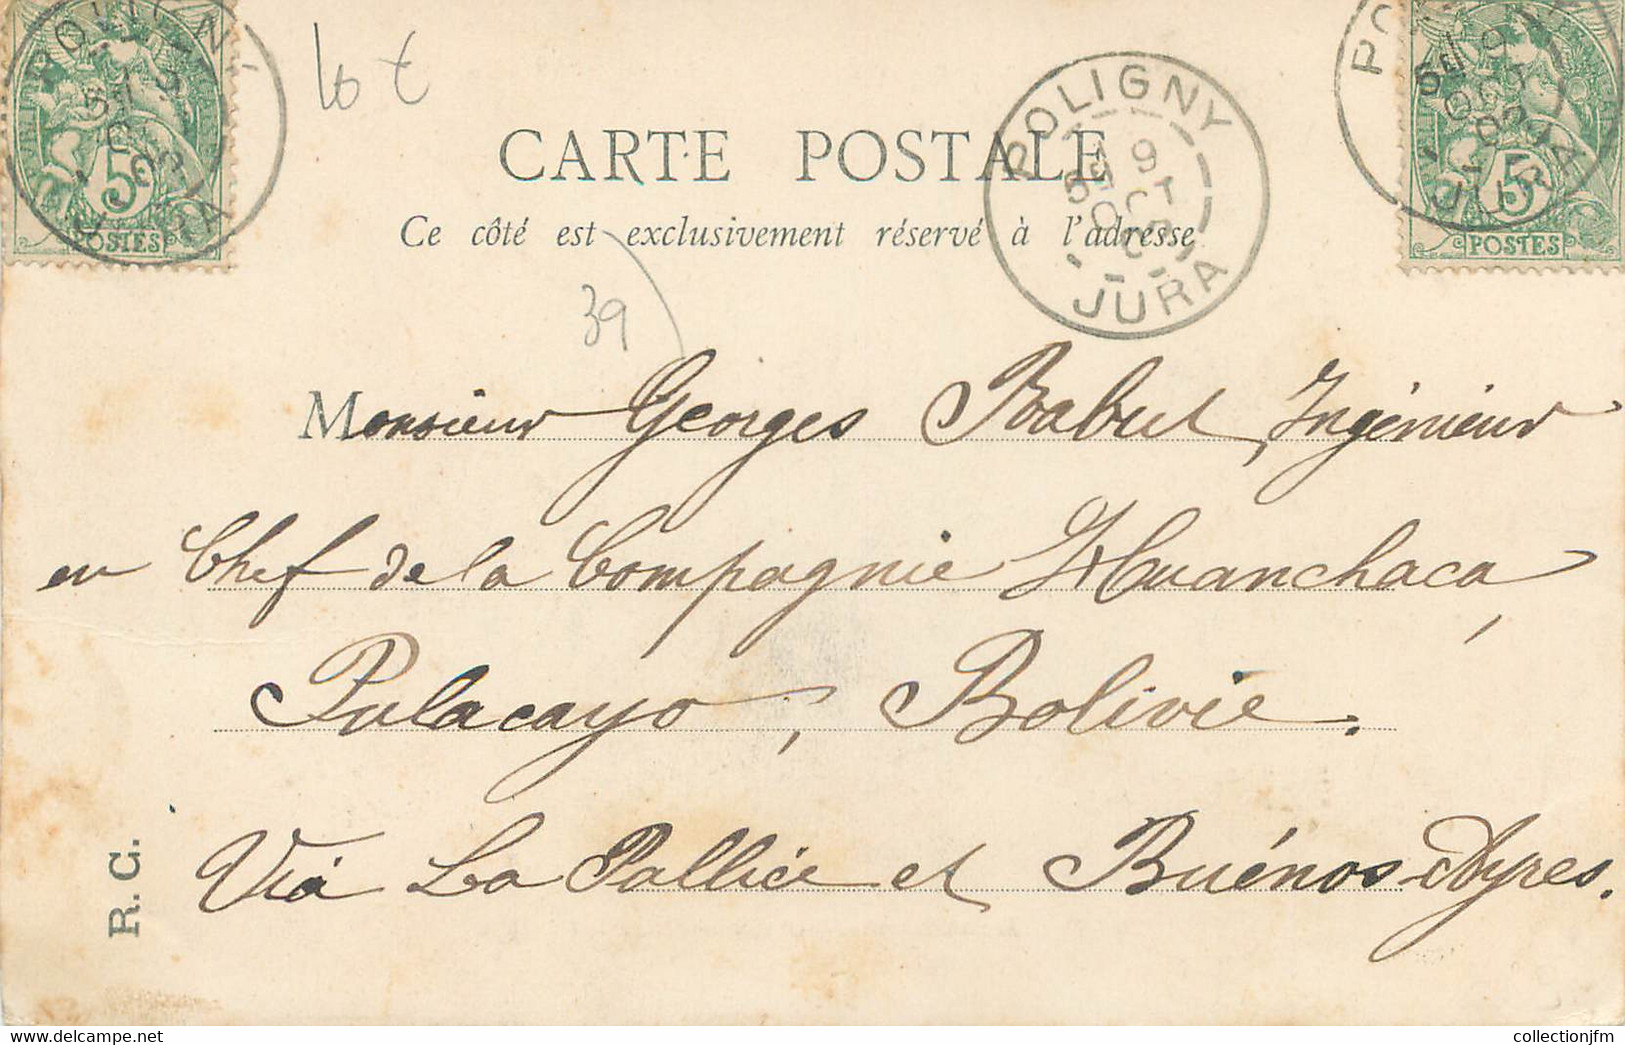 POLIGNY
5
POSTES
10 €
CARTE POSTALE
Ce côté est exclusivement réservé à l'adresse
POLIGNY
9
OCT
JURA
5
POSTES
JURA
39
Monsieur Georges Babut, Ingénieur
en Chef de la Compagnie Huanchaca,
Pulacayo, Bolivie.
Via La Pallice et Buénos-Ayres.
R. C.
collectionjfm